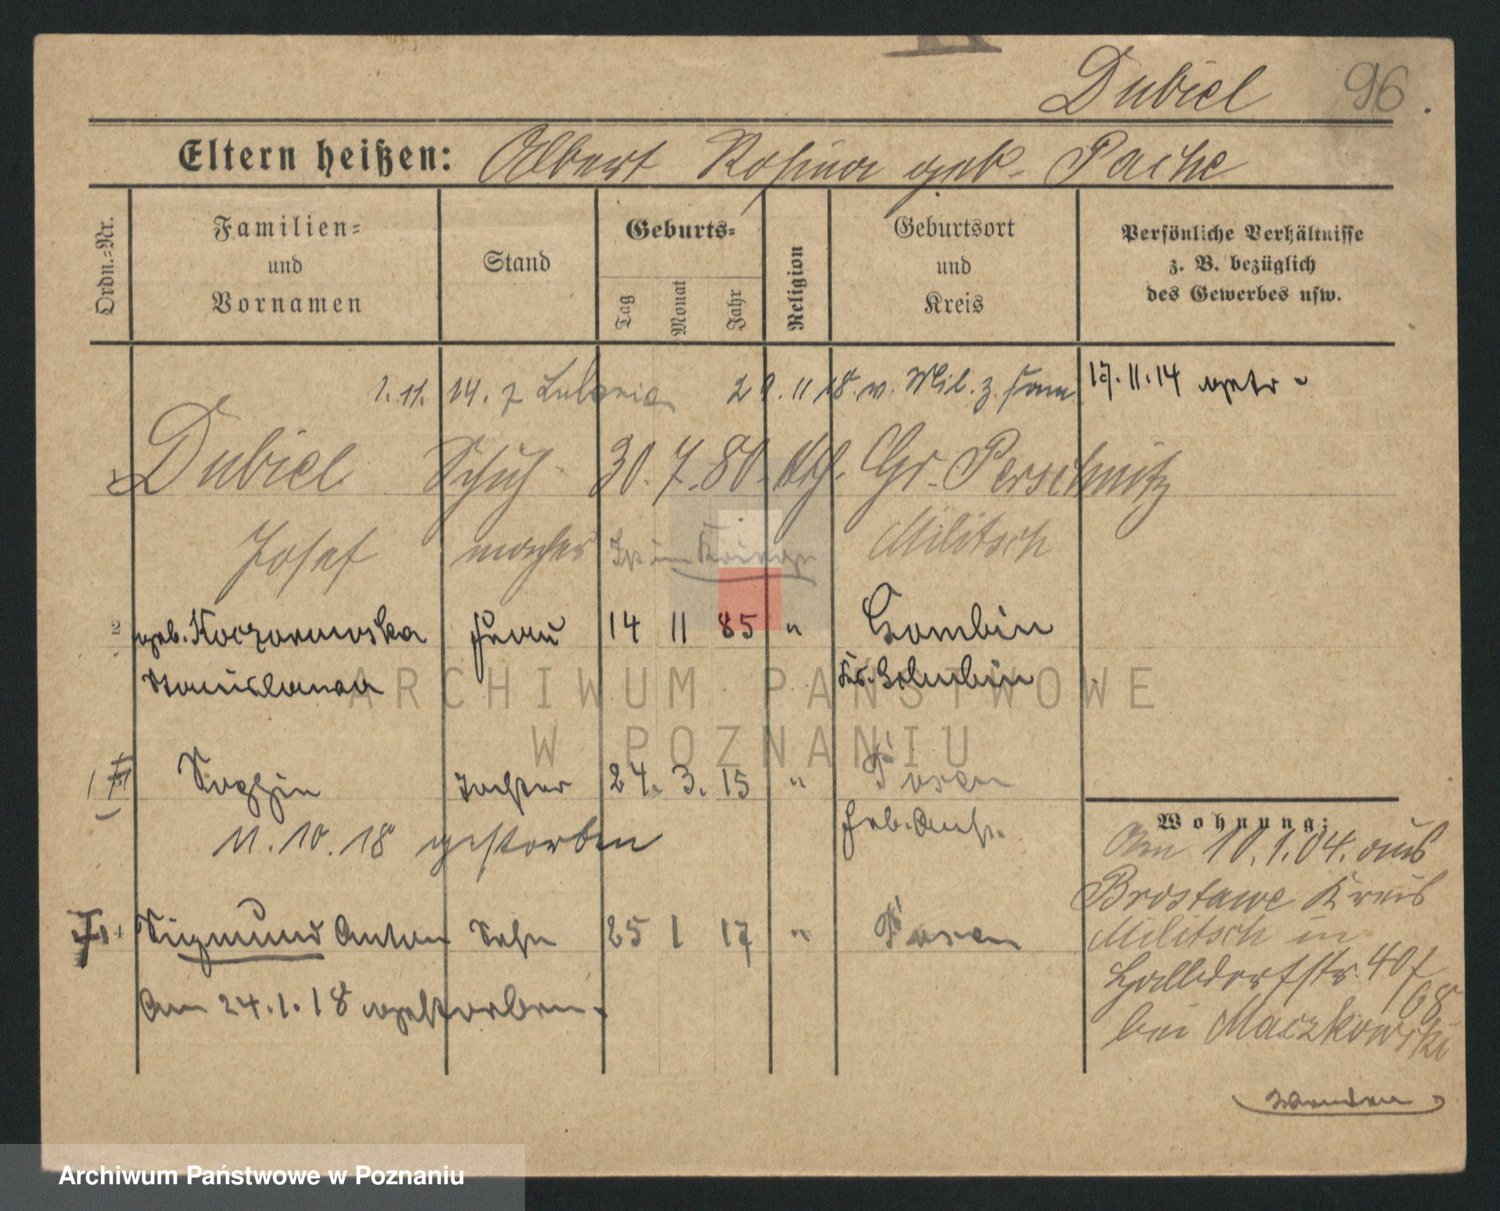 Dubiel 96.
Eltern heißen: Albert Rosina geb. Pache
Ordn.-Nr.
Familien-
und
Vornamen
Stand
Geburts-
Tag
Monat
Jahr
Religion
Geburtsort
und
Kreis
Persönliche Verhältnisse
z. B. bezüglich
des Gewerbes usw.
1.11. 14. z 29.11 18. v. Mil. z. 17.11.14 getr.
1 Dubiel Schuh- 30. 7. 80. kth. Gr. Perschnitz
Josef macher Ist im Kriege Militsch
2 geb. Koczorowska Frau 14 11 85 " Gombin
Stanislawa Kr. Gostynin
Tochter 24. 3. 15 " Posen
11.10.18 gestorben Heb. Anst.
4 Sigmund Anton Sohn 25 1 17 " Posen
Am 24.1.18 gestorben.
Wohnung:
Am 10.1.04. aus
Brostawe Kreis
Militsch in
40/
68
bei Maczkowski
Wenden
ARCHIWUM PAŃSTWOWE
W POZNANIU
Archiwum Państwowe w Poznaniu